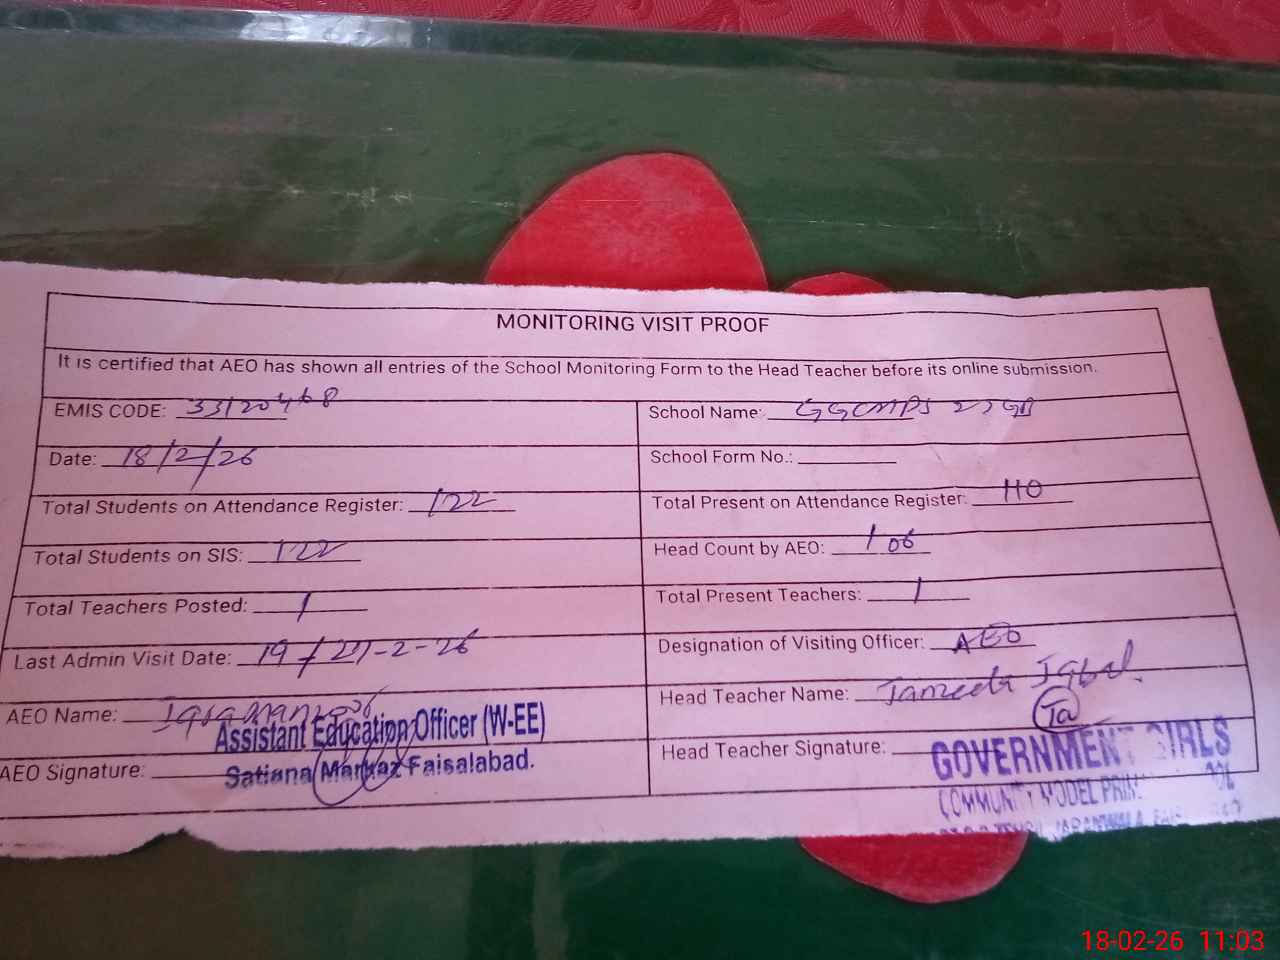 MONITORING VISIT PROOF
It is certified that AEO has shown all entries of the School Monitoring Form to the Head Teacher before its online submission.
EMIS CODE: 33120468 School Name: GGCMPS 27 GB
Date: 18/2/26 School Form No.:
Total Students on Attendance Register: 122 Total Present on Attendance Register: 110
Total Students on SIS: 122 Head Count by AEO: 106
Total Teachers Posted: 1 Total Present Teachers: 1
Last Admin Visit Date: -2-26 Designation of Visiting Officer: AEO
AEO Name: Head Teacher Name: Iqbal
Assistant Education Officer (W-EE)
AEO Signature: Head Teacher Signature:
Satiana Markaz Faisalabad.
GOVERNMENT GIRLS
COMMUNITY MODEL
JARANWALA
18-02-26 11:03